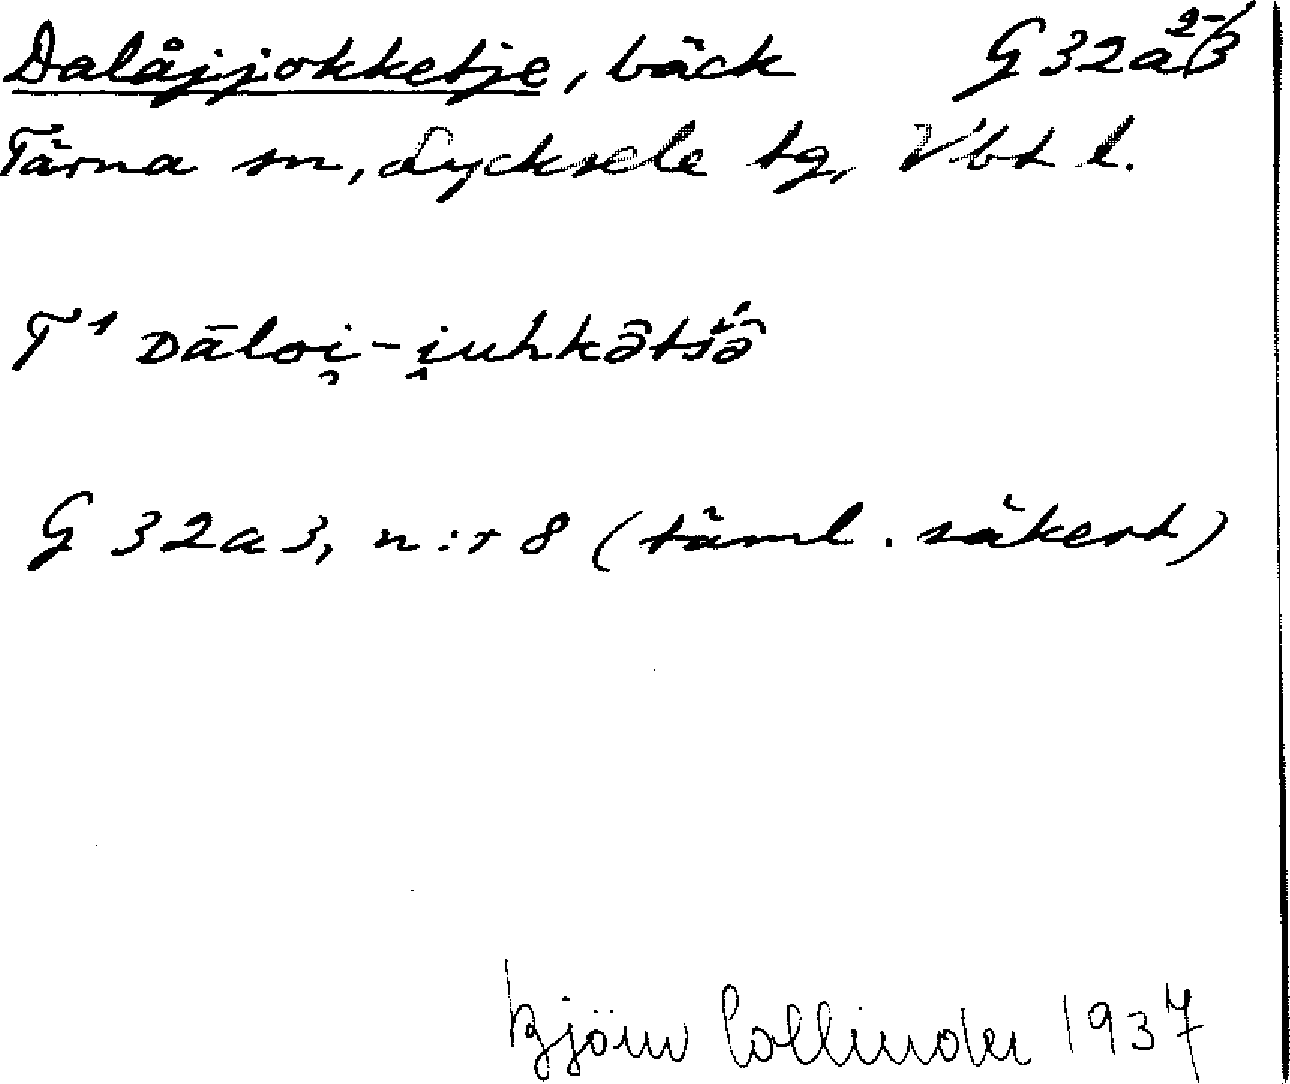 Dalåjjokketje, bäck G32a2-3
Tärna sn, Lycksele tg, Vbt l.
T¹ Dāloi̯-i̮uhkâtśâ
G 32a3, n:r 8 (täml. säkert)
Björn Collinder 1937